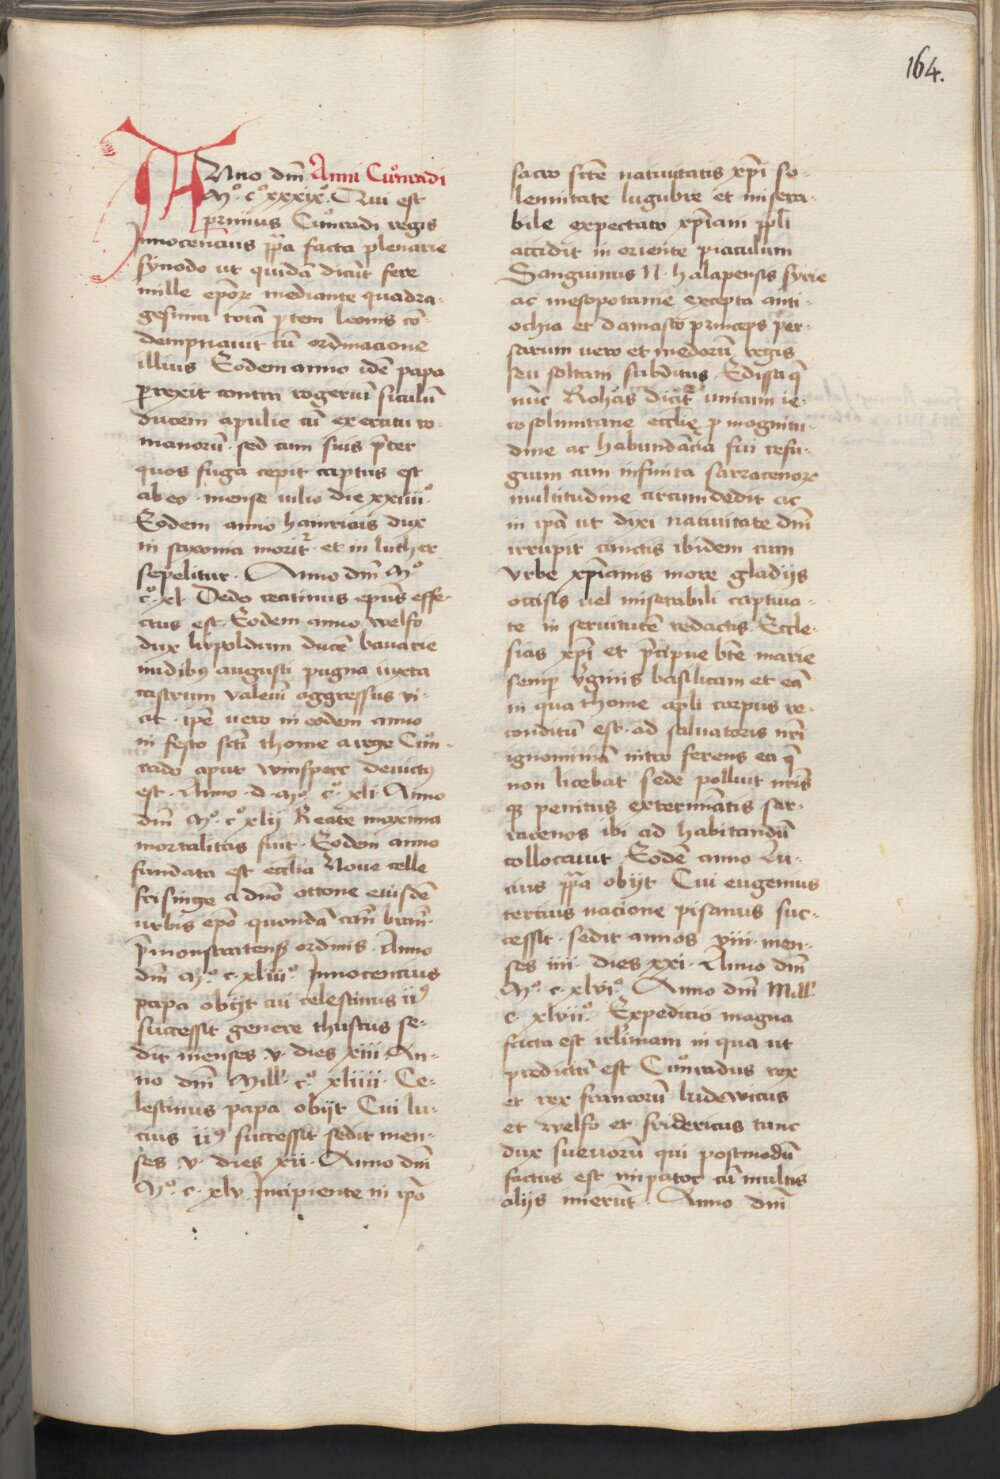 164.
Anno dm̄ Anni Cuͦnradi
Mᵒ. cᵒ xxxixᵒ. Qui est
primus Cuͦnradi regis
Innocencius pp̄a facta plenarie
synodo ut quidā dicūt fere
mille ep̄oꝝ mediante quadra-
gesima totā ꝑtem leonis cō-
dempnavit cū ordinacione
illius Eodem anno idē papa
ꝑrexit contra rogeriū siculū
ducem apulie cū exercitu ro-
manorū. sed cum suis p̄ter
quos fuga cepit captus est
ab eo. mense iulio die xxiiii.
Eodem anno hainricus dux
in saxonia morit̄ et in luther
sepelitur. Anno dm̄ Mᵒ
cᵒ. xl. Dedo reatinus ep̄us effe-
ctus est. Eodem anno welfo
dux liupoldum ducē bavarie
in idibꝰ augusti pugna iuxta
castrum valeiū aggressus vi-
cit. ip̄e vero in eodem anno
in festo scī thome a rege Cuͦn-
rado aput winsperc devictꝰ
est. Anno. d. Mᵒ. cᵒ. xli Anno
dm̄ Mᵒ. cᵒ xlij Reate maxima
mortalitas fuit. Eodem anno
fundata est ecclīa Noue celle
frisinge a dn̄o ottone eiusdē
urbis ep̄o quondā
p̄monstratens̄ ordinis. Anno
dm̄ Mᵒ. c. xliiiᵒ Innocencius
papa obijt cui celestinus iiꝰ
successit genere thuscus se-
dit menses .v. dies xiii. An-
no dm̄ Mill̄. cᵒ. xliiii. Ce-
lestinus papa obijt Cui lu-
cius iiꝰ successit sedit men-
ses .v. dies xii. Anno dm̄
Mᵒ. c. xlv. Incipiente in ip̄o
sacro sc̄te nativitatis xp̄i so-
lennitate lugubre et misera-
bile expectato xp̄iani pp̄li
accidit in oriente piaculum
Sanguinus N. halapensis syrie
ac mesopotamie excepta anti-
ochia et damasco princeps per-
sarum vero et medorū regis
seu soltani subditus. Edissā q̄
nūc Rohas dicit̄ unicum ie-
rosolimitane eccl̄ie p̄ magnitu-
dine ac habundācia sui refu-
gium cum infinita sarracenoꝝ
multitudine circumdedit ac
in ip̄a ut dixi nativitate dm̄
irrupit cunctis ibidem cum
vrbe xp̄ianis more gladijs
occisis vel miserabili captiui-
te in seruitutē redactis. Eccle-
sias xp̄i et p̄cipue btē marie
semꝑ v̄ginis basilicam et eā
in qua thome apl̄i corpus re-
conditū est. ad saluatoris nr̄i
ignominiā intro ferens ea q̄
non licebat sede polluit nr̄is
qꝫ penitus exterminātis sar-
racenos ibi ad habitandū
collocauit Eodē anno Lu-
cius pp̄a obijt Cui eugenius
tercius nacione pisanus suc-
cessit. sedit annos viii. men-
ses iiii. dies xxi. Anno dm̄
Mᵒ. c. xlviᵒ. Anno dm̄ Mill̄
c. xlviiᵒ. Expedicio magna
facta est irl̄imam in qua ut
predictū est Cuͦnradus rex
et rex francorū ludewicus
et welfo et fridericus tunc
dux suevorū qui postmodū
factus est impator cū multis
alijs inierūt. Anno dm̄